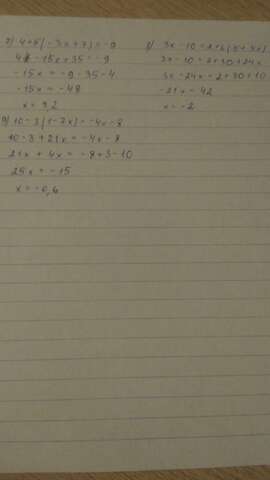 4+5(-3x+7)=-9
4-15x+35=-9
-15x=-9-35-4
-15x=-48
x=3,2
10-3(1-7x)=-4x-8
10-3+21x=-4x-8
21x+4x=-8+3-10
25x=-15
x=-0,6
3x-10=2+
3x-10=2+30+24x
3x-24x=2+30+10
-21x=42
x=-2